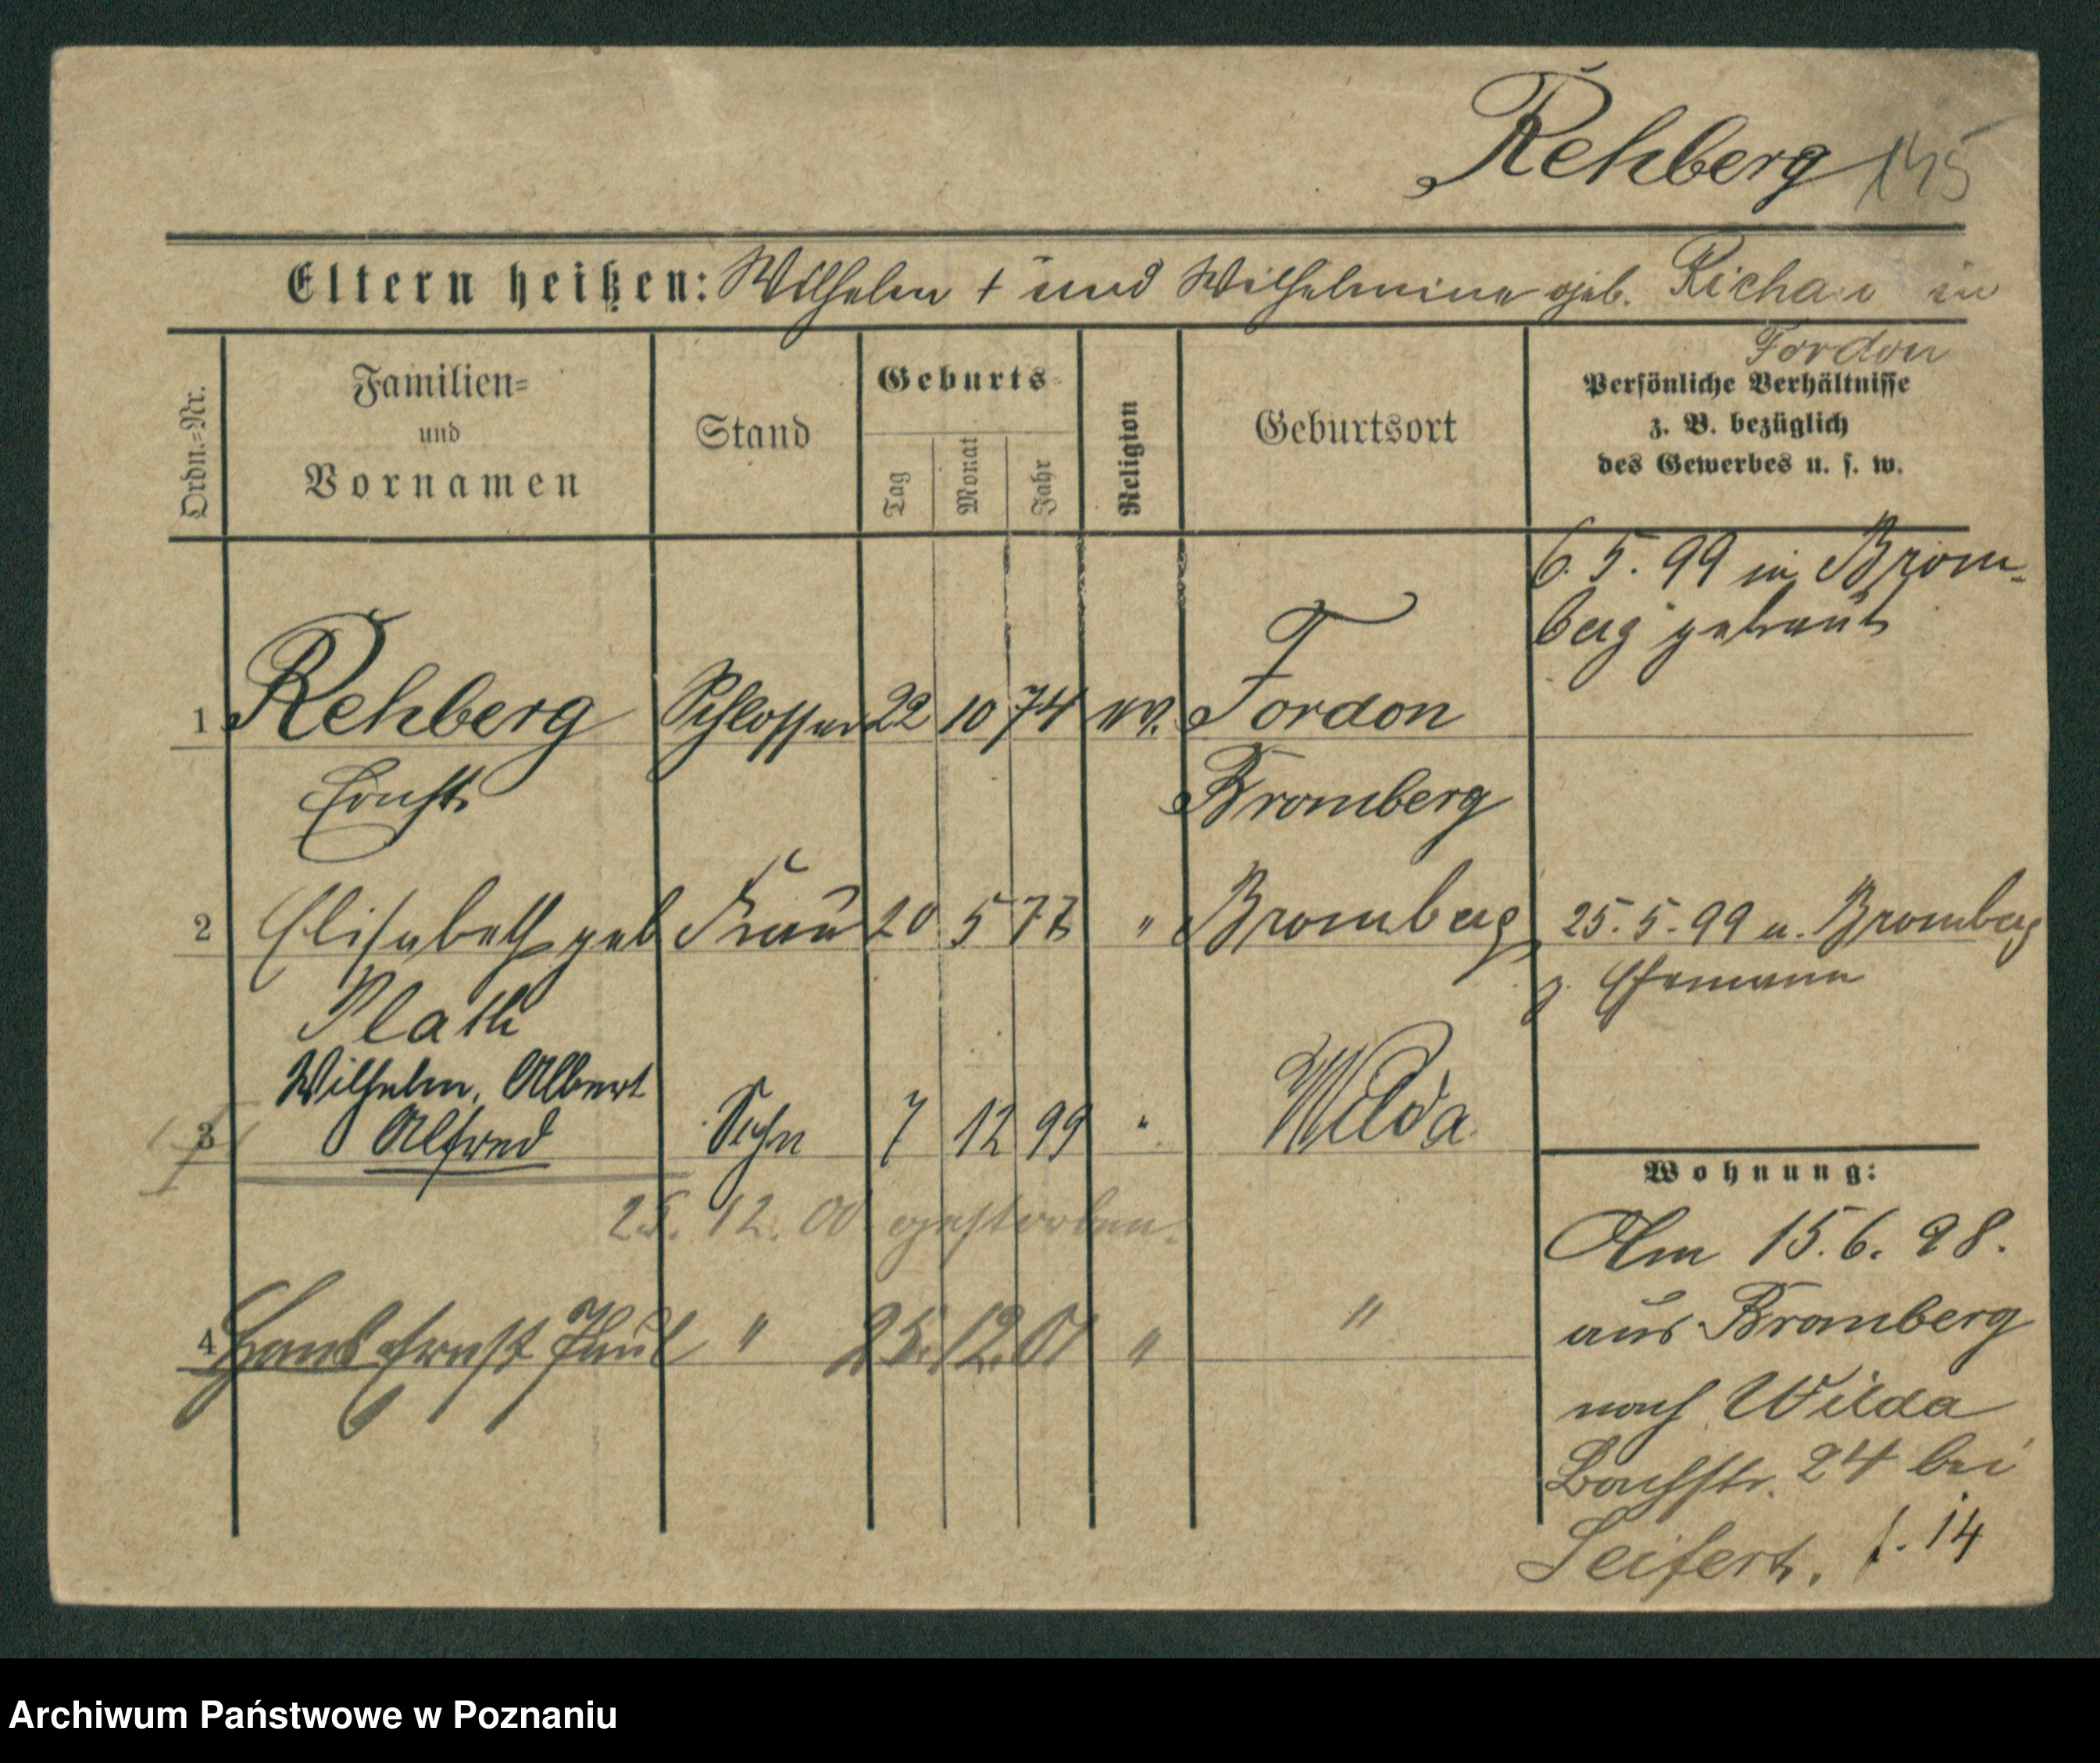 Rehberg 145
Eltern heißen: Wilhelm + und Wilhelmine geb. Richau in
Fordon
Ordn.=Nr.
Familien=
und
Vornamen
Stand
Geburts=
Tag
Monat
Jahr
Religion
Geburtsort
Persönliche Verhältnisse
z. B. bezüglich
des Gewerbes u. s. w.
6. 5. 99 in Brom-
berg getraut
1 Rehberg Schlosser 22 10 74 ev. Fordon
Ernst Bromberg
2 Elisabeth geb Frau 20 5 77 " Bromberg 25. 5. 99 v. Bromberg
Plath z. Ehemann
Wilhelm, Albert
3 Alfred Sohn 7 12 99 " Wilda
25. 12. 00 gestorben.
4 Hans Ernst Paul " 25. 12. 01 " "
Wohnung:
Am 15. 6. 98.
aus Bromberg
nach Wilda
Bachstr. 24 bei
Seifert. f. 14
Archiwum Państwowe w Poznaniu